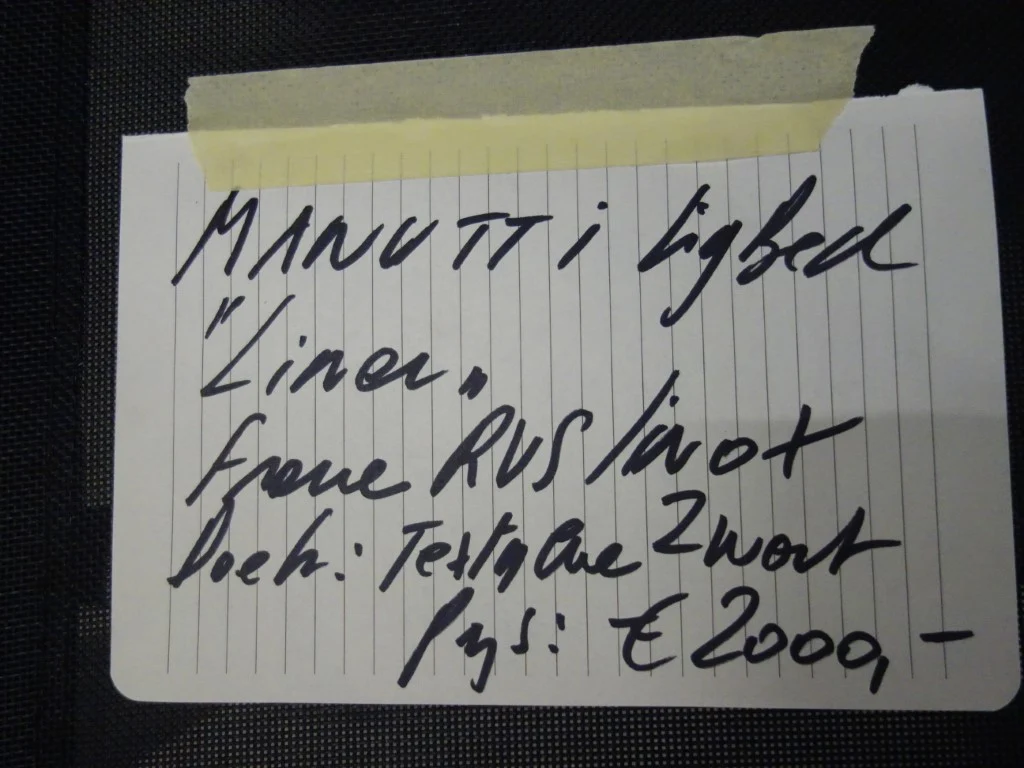 MANUTTI ligbed
"Liner"
Frame RVS/inox
Doek: Textylene Zwart
Prijs: € 2000,-